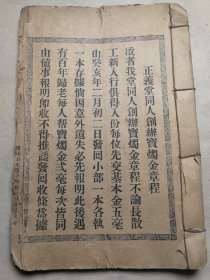 正義堂同人創辦寶燭金章程
啟者我堂同人創辦寶燭金章程不論長散
工新人行俱得入份每位先交基本金五毫
由癸亥年二月初二日發囘小部一本各執
一本存據倘因意外遺失必先報明此後遇
有百年歸老每人帮寶燭金弍毫每次皆同
由值事報明卽收不得推諉發囘收條爲據